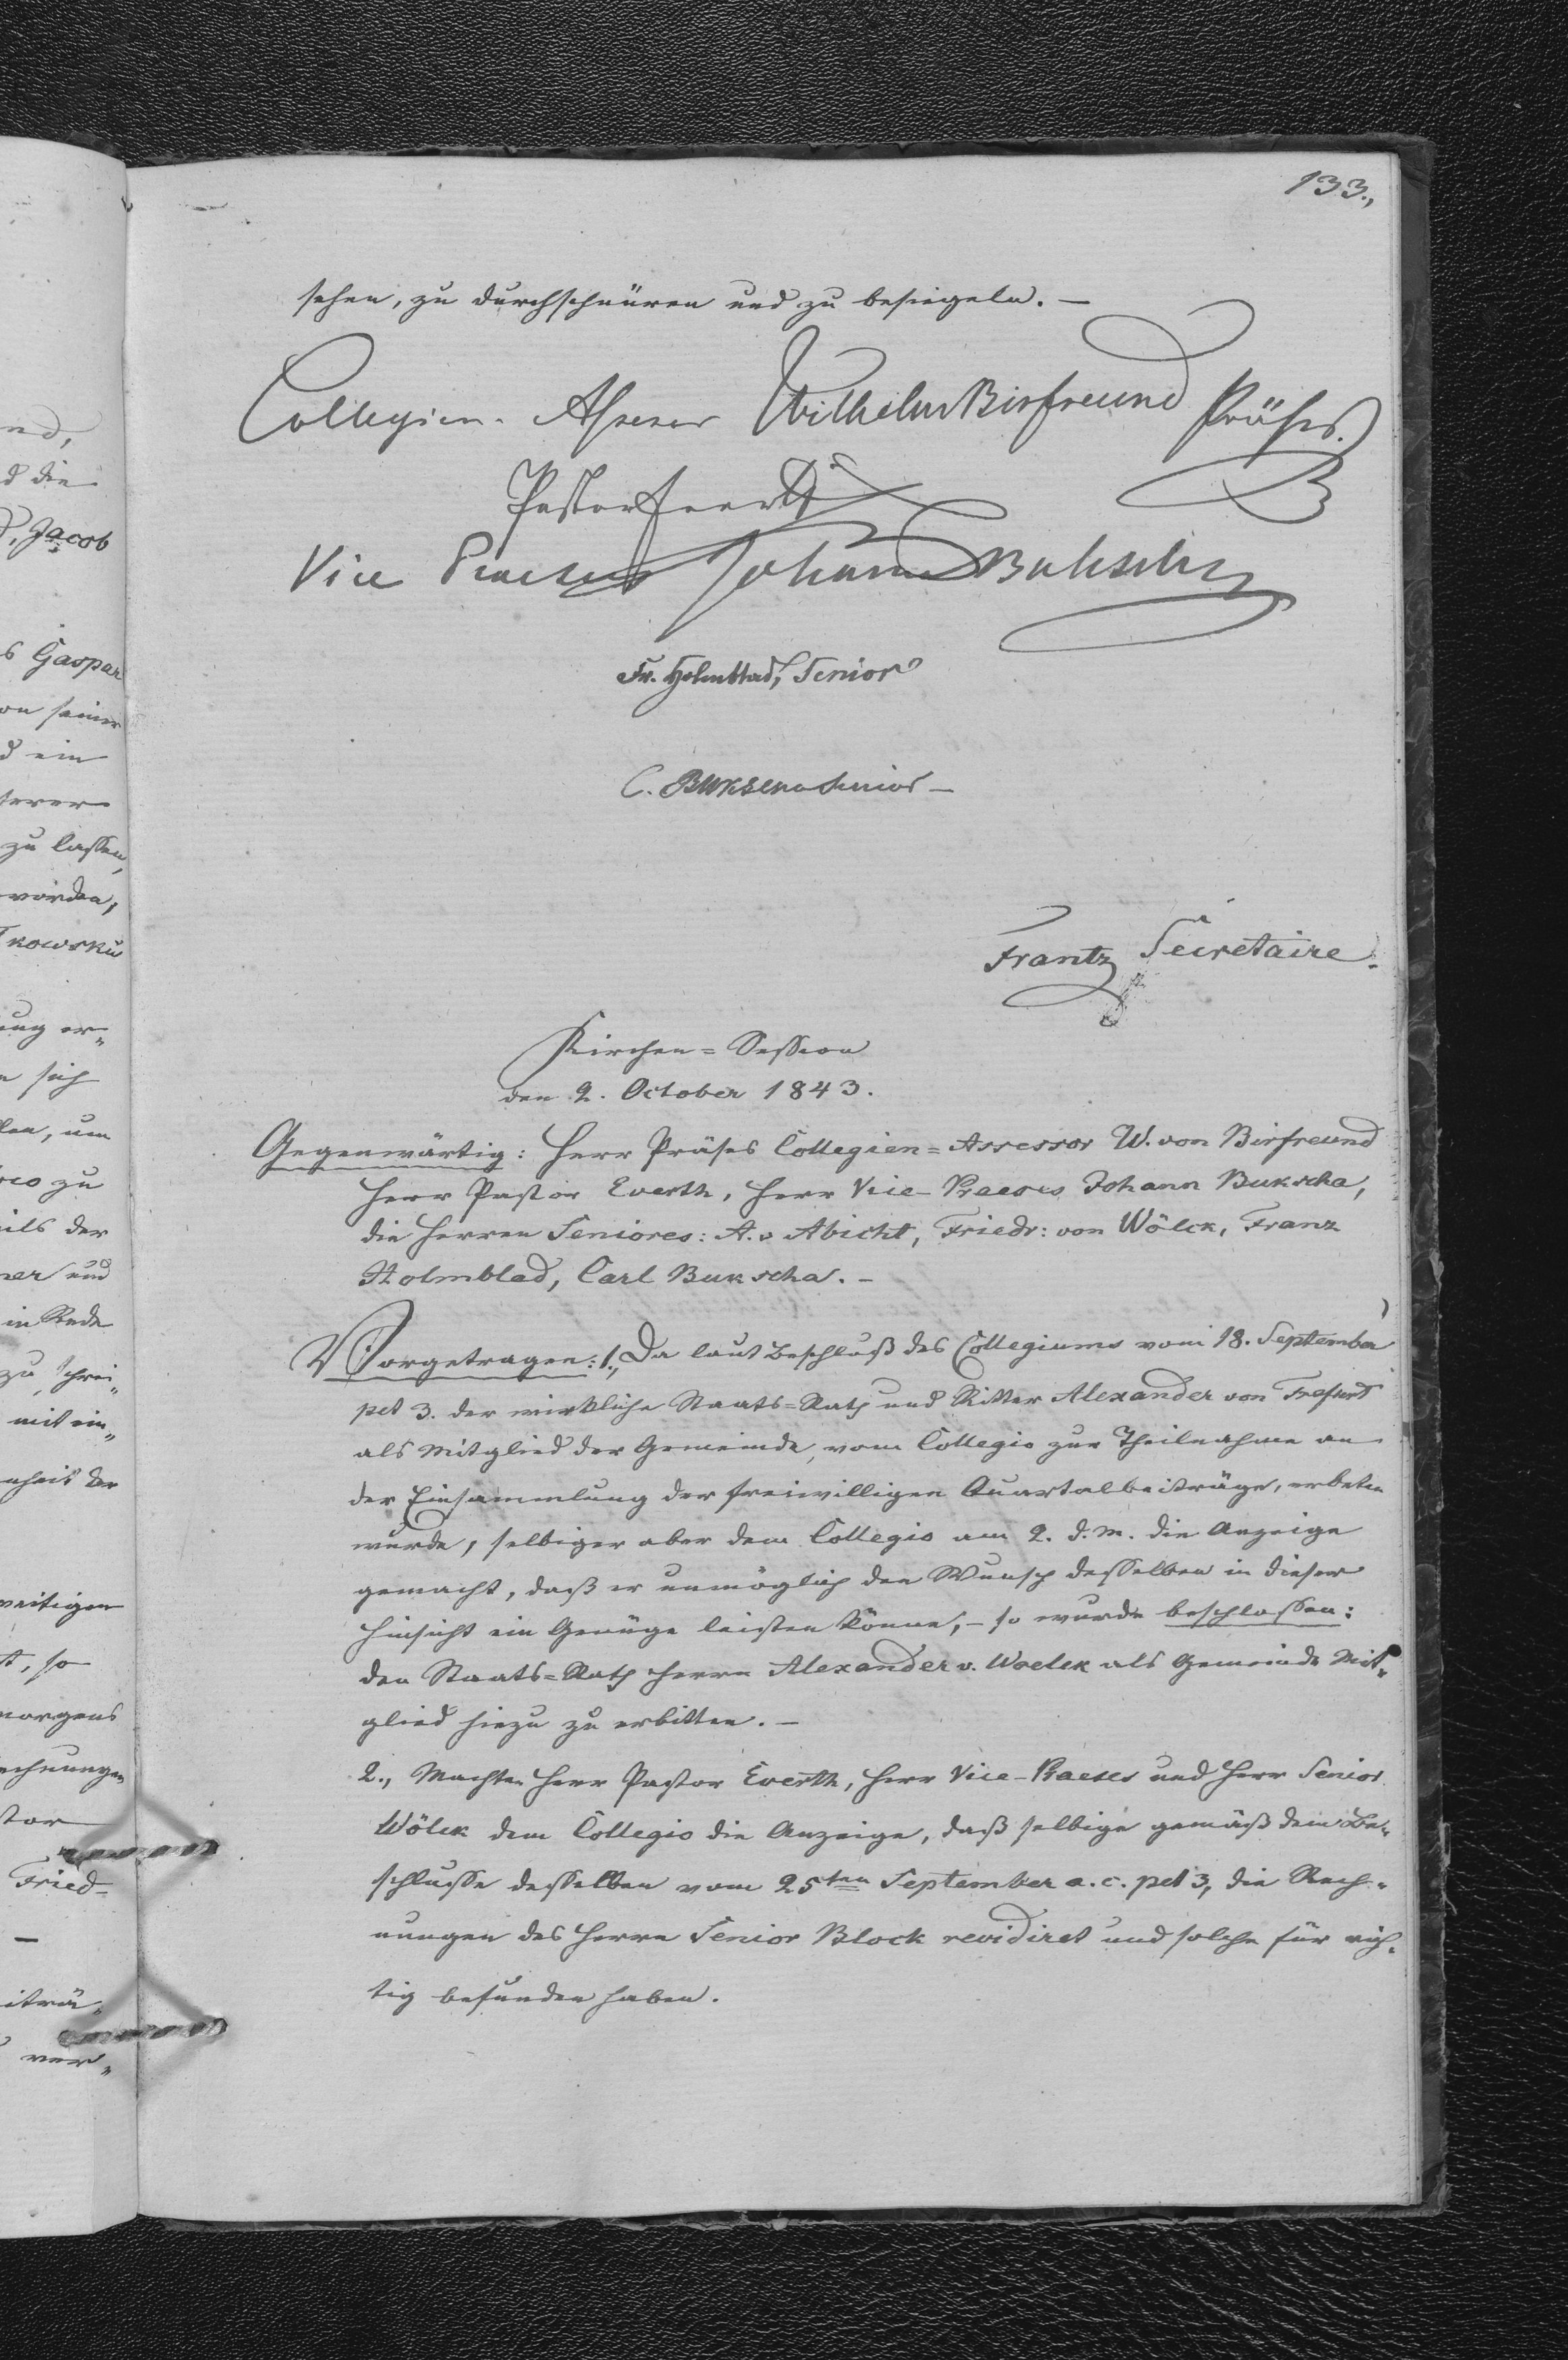 133.,
sehen, zu durchschnüren und zu besiegeln. —
Collegien-Assessor Wilhelm Birfreund Präses.
Pastor Everth
Vice Praeses Johann Bukscha
Fr. Holmblad, Senior
C. Bukscha Senior —
Frantz Secretaire.
Kirchen = Session
den 2. October 1843.
Gegenwärtig: Herr Präses Collegien = Assessor W. von Birfreund
Herr Pastor Everth, Herr Vice-Praeses Johann Bukscha,
die Herren Seniores: A. v Abicht, Friedr: von Wölck, Franz
Holmblad, Carl Bukscha. —
Vorgetragen: 1., Da laut Beschluß des Collegiums vom 18. September
pct 3. der wirkliche Staats=Rath und Ritter Alexander von Trefurt
als Mitglied der Gemeinde, vom Collegio zur Theilnahme an
der Einsammlung der freiwilligen Quartalbeiträge, erbeten
wurde, selbiger aber dem Collegio am 2. d. M. die Anzeige
gemacht, daß er unmöglich den Wunsch desselben in dieser
Hinsicht ein Genüge leisten könne, – so wurde beschlossen:
den Staats=Rath Herrn Alexander v. Woelck als Gemeinde Mit„
glied hiezu zu erbitten. —
2., Machten Herr Pastor Everth, Herr Vice-Praeses und Herr Senior
Wölck dem Collegio die Anzeige, daß selbige gemäß dem Be„
schlusse desselben vom 25ten September a. c. pct 3, die Rech„
nungen des Herrn Senior Block revidiret und solche für rich„
tig befunden haben.
nd,
d die
Jacob
s Gaspar
on seiner
d ein
zu lassen,
worden,
kowsku
ung er„
n sich
len, um
zu
ils der
ner und
in Rede
zu schrei„
mit ein„
nheit der
t, so
morgens
echnungen
tor
Fried-
—
iträ„
ver„